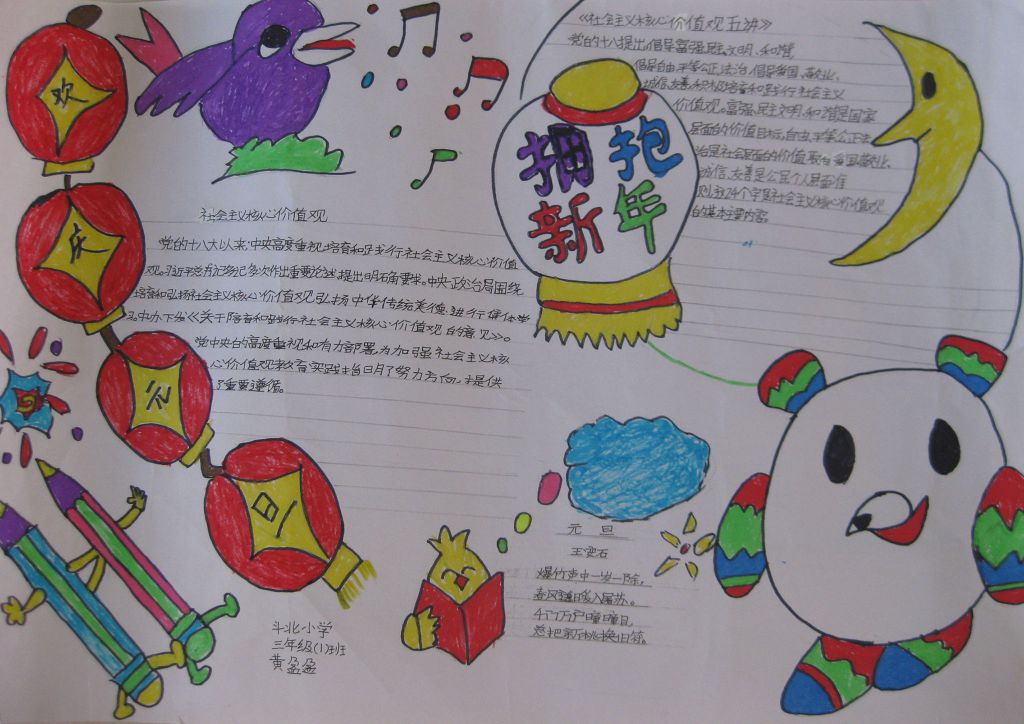 欢
庆
元
旦
社会主义核心价值观
党的十八大以来，中央高度重视培育和践行社会主义核心价值
观。习近平总书记多次作出重要论述、提出明确要求。中央政治局围绕
培育和弘扬社会主义核心价值观弘扬中华传统美德，进行集体学
习。中办下发《关于培育和践行社会主义核心价值观的意见》。
党中央的高度重视和有力部署，为加强社会主义核
心价值观教育实践指明了努力方向，提供
了重要遵循。
《社会主义核心价值观五讲》
党的十八提出，倡导富强、民主、文明、和谐
倡导自由、平等、公正、法治，倡导爱国、敬业、
诚信、友善，积极培育和践行社会主义
价值观。富强、民主、文明、和谐是国家
层面的价值目标，自由、平等、公正、法
治是社会层面的价值取向，爱国、敬业、
诚信、友善是公民个人层面
则，这24个字是社会主义核心价值观
的基本内容。
拥抱
新年
元旦
王安石
爆竹声中一岁除，
春风送暖入屠苏。
千门万户曈曈日，
总把新桃换旧符。
斗北小学
三年级(1)班
黄盈盈